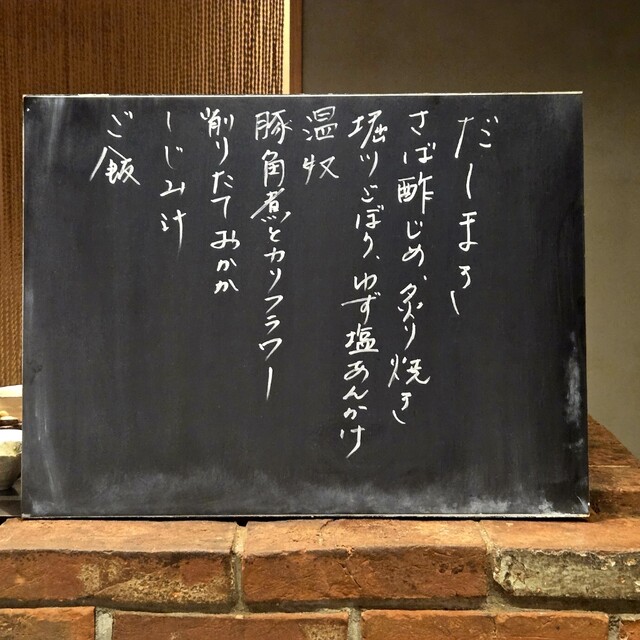 だしまき
さば酢じめ、炙り焼き
堀川ごぼう、ゆず塩あんかけ
温奴
豚角煮とカリフラワー
削りたておかか
しじみ汁
ご飯